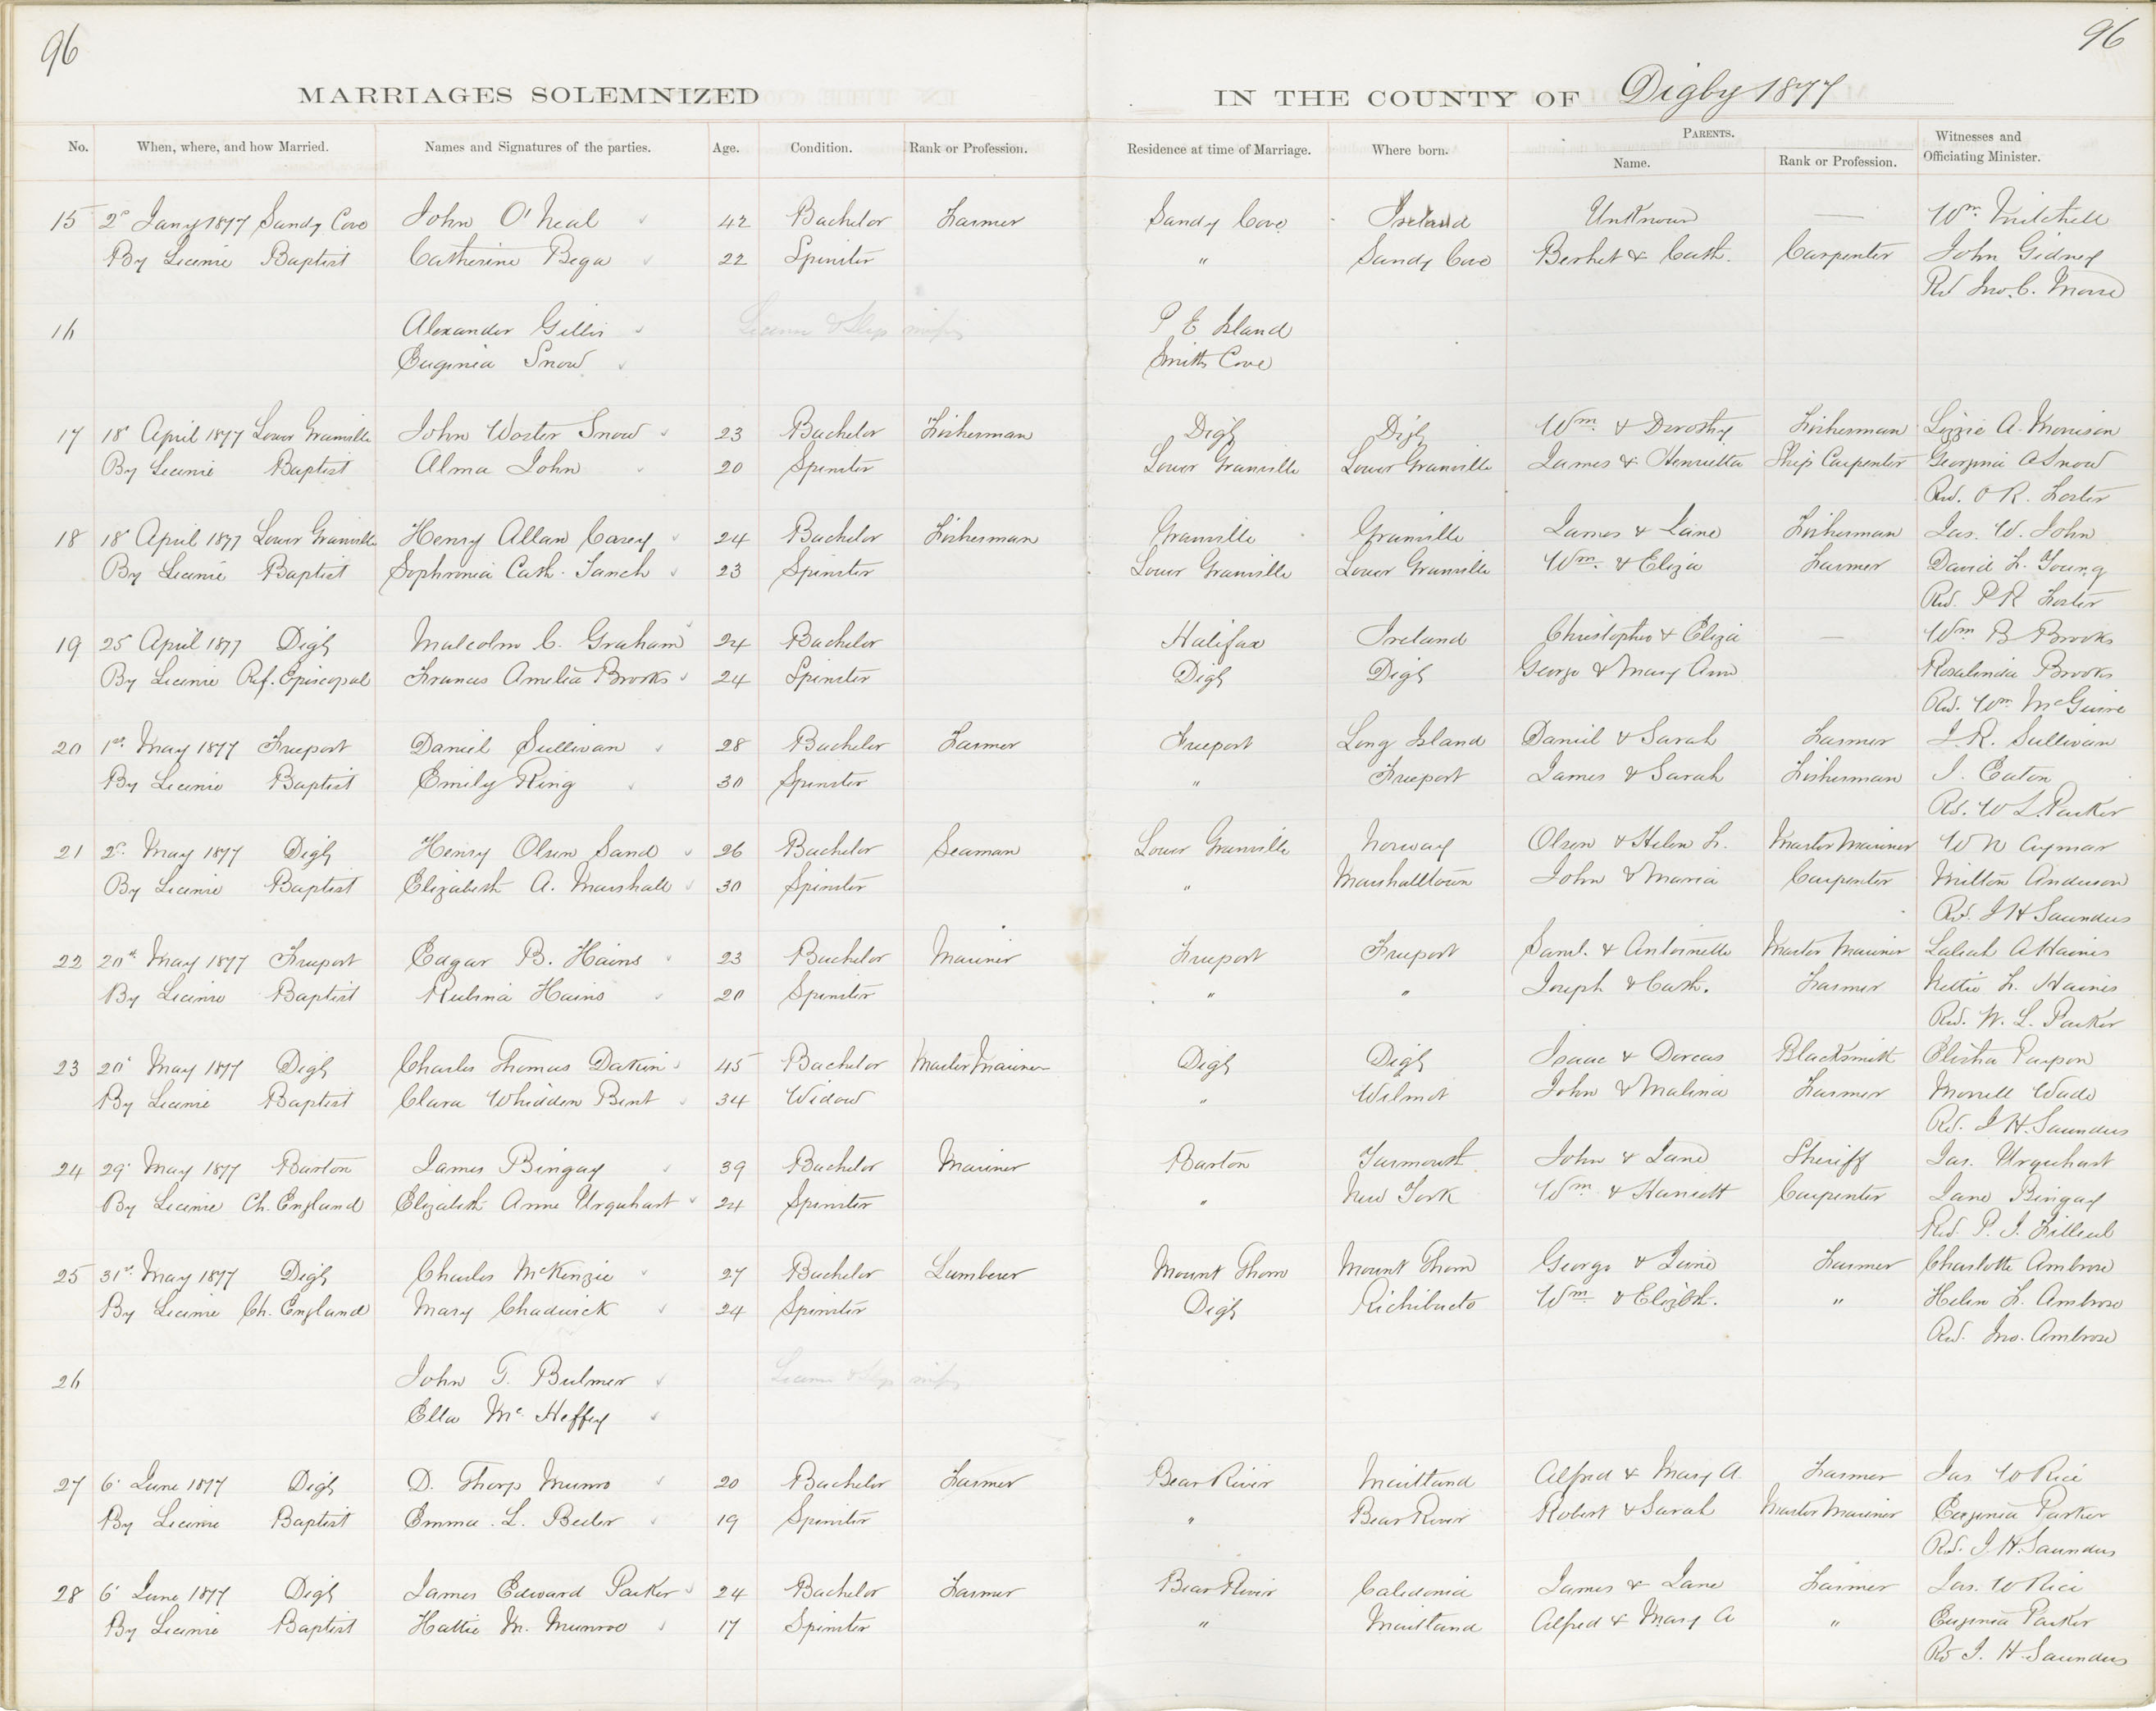 96 96
MARRIAGES SOLEMNIZED IN THE COUNTY OF Digby 1877
No. When, where, and how Married. Names and Signatures of the parties. Age. Condition. Rank or Profession. Residence at time of Marriage. Where born. PARENTS. Name. Rank or Profession. Witnesses and Officiating Minister.
15 2d Jany 1877 Sandy Cove John O'Neal 42 Bachelor Farmer Sandy Cove Ireland Unknown — Wm. Mitchell
By Licence Baptist Catherine 22 Spinster " Sandy Cove & Cath. Carpenter John Gidney
Rd Jno. C. Morse
16 Alexander Gillis Licence & Slip P E Island
Euginia Snow Smiths Cove
17 18 April 1877 Lower Granville John Woster Snow 23 Bachelor Fisherman Digby Digby Wm. & Dorothy Fisherman Lizzie A. Morrison
By Licence Baptist Alma John 20 Spinster Lower Granville Lower Granville James & Henrietta Ship Carpenter Georgina A Snow
Rev. R. Foster
18 18 April 1877 Lower Granville Henry Allan Casey 24 Bachelor Fisherman Granville Granville James & Jane Fisherman Jas. W. John
By Licence Baptist Sophronia Cath. 23 Spinster Lower Granville Lower Granville Wm. & Eliza Farmer David L. Young
Rev. P R Foster
19 25 April 1877 Digby Malcolm C. Graham 24 Bachelor Halifax Ireland Christopher & Eliza — Wm B Brooks
By Licence Ref. Episcopal Frances Amelia Brooks 24 Spinster Digby Digby George & Mary Ann Rosalinda Brooks
Rev. Wm McGuire
20 1st May 1877 Freeport Daniel Sullivan 28 Bachelor Farmer Freeport Long Island Daniel & Sarah Farmer J. R. Sullivan
By Licence Baptist Emily Ring 30 Spinster " Freeport James & Sarah Fisherman J. Eaton
Rd. W L. Parker
21 2d May 1877 Digby Henry Olsen Sand 26 Bachelor Seaman Lower Granville Norway Olsen & Helen L. Master Mariner W N Aymar
By Licence Baptist Elizabeth A. Marshall 30 Spinster " Marshalltown John & Maria Carpenter Milton Anderson
Rd. J H Saunders
22 20th May 1877 Freeport Edgar B. Hains 23 Bachelor Mariner Freeport Freeport Saml. & Antoinette Master Mariner A Haines
By Licence Baptist Hains 20 Spinster " " Joseph & Cath. Farmer Nettie L. Haines
Rev. W. L. Parker
23 20 May 1877 Digby Charles Thomas Dakin 45 Bachelor Master Mariner Digby Digby Isaac & Dorcas Blacksmith Elisha Payson
By Licence Baptist Clara Whidden Bent 34 Widow " Wilmot John & Malina Farmer Morrell Wade
Rd. J H. Saunders
24 29 May 1877 Barton James Bingay 39 Bachelor Mariner Barton Yarmouth John & Jane Sheriff Jas. Urquhart
By Licence Ch. England Elizabeth Anne Urquhart 24 Spinster " New York Wm. & Harriett Carpenter Jane Bingay
Rd. P. J. Filleul
25 31st May 1877 Digby Charles McKinzie 27 Bachelor Lumberer Mount Thom Mount Thom George & Farmer Charlotte Ambrose
By Licence Ch. England Mary Chadwick 24 Spinster Digby Richibucto Wm. & Elizbth. " Helen L. Ambrose
Rev. Jno. Ambrose
26 John T. Bulmer Licence & Slip
Ella Mc Heffey
27 6 June 1877 Digby D. Thorp Munro 20 Bachelor Farmer Bear River Maitland Alfred & Mary A. Farmer Jas W Rice
By Licence Baptist Emma. L. Beeler 19 Spinster " Bear River Robert & Sarah Master Mariner Euginia Parker
Rd. J. H. Saunders
28 6 June 1877 Digby James Edward Parker 24 Bachelor Farmer Bear River Caledonia James & Jane Farmer Jas. W Rice
By Licence Baptist Hattie M. Munroe 17 Spinster " Maitland Alfred & Mary A " Euginia Parker
Rd J. H. Saunders